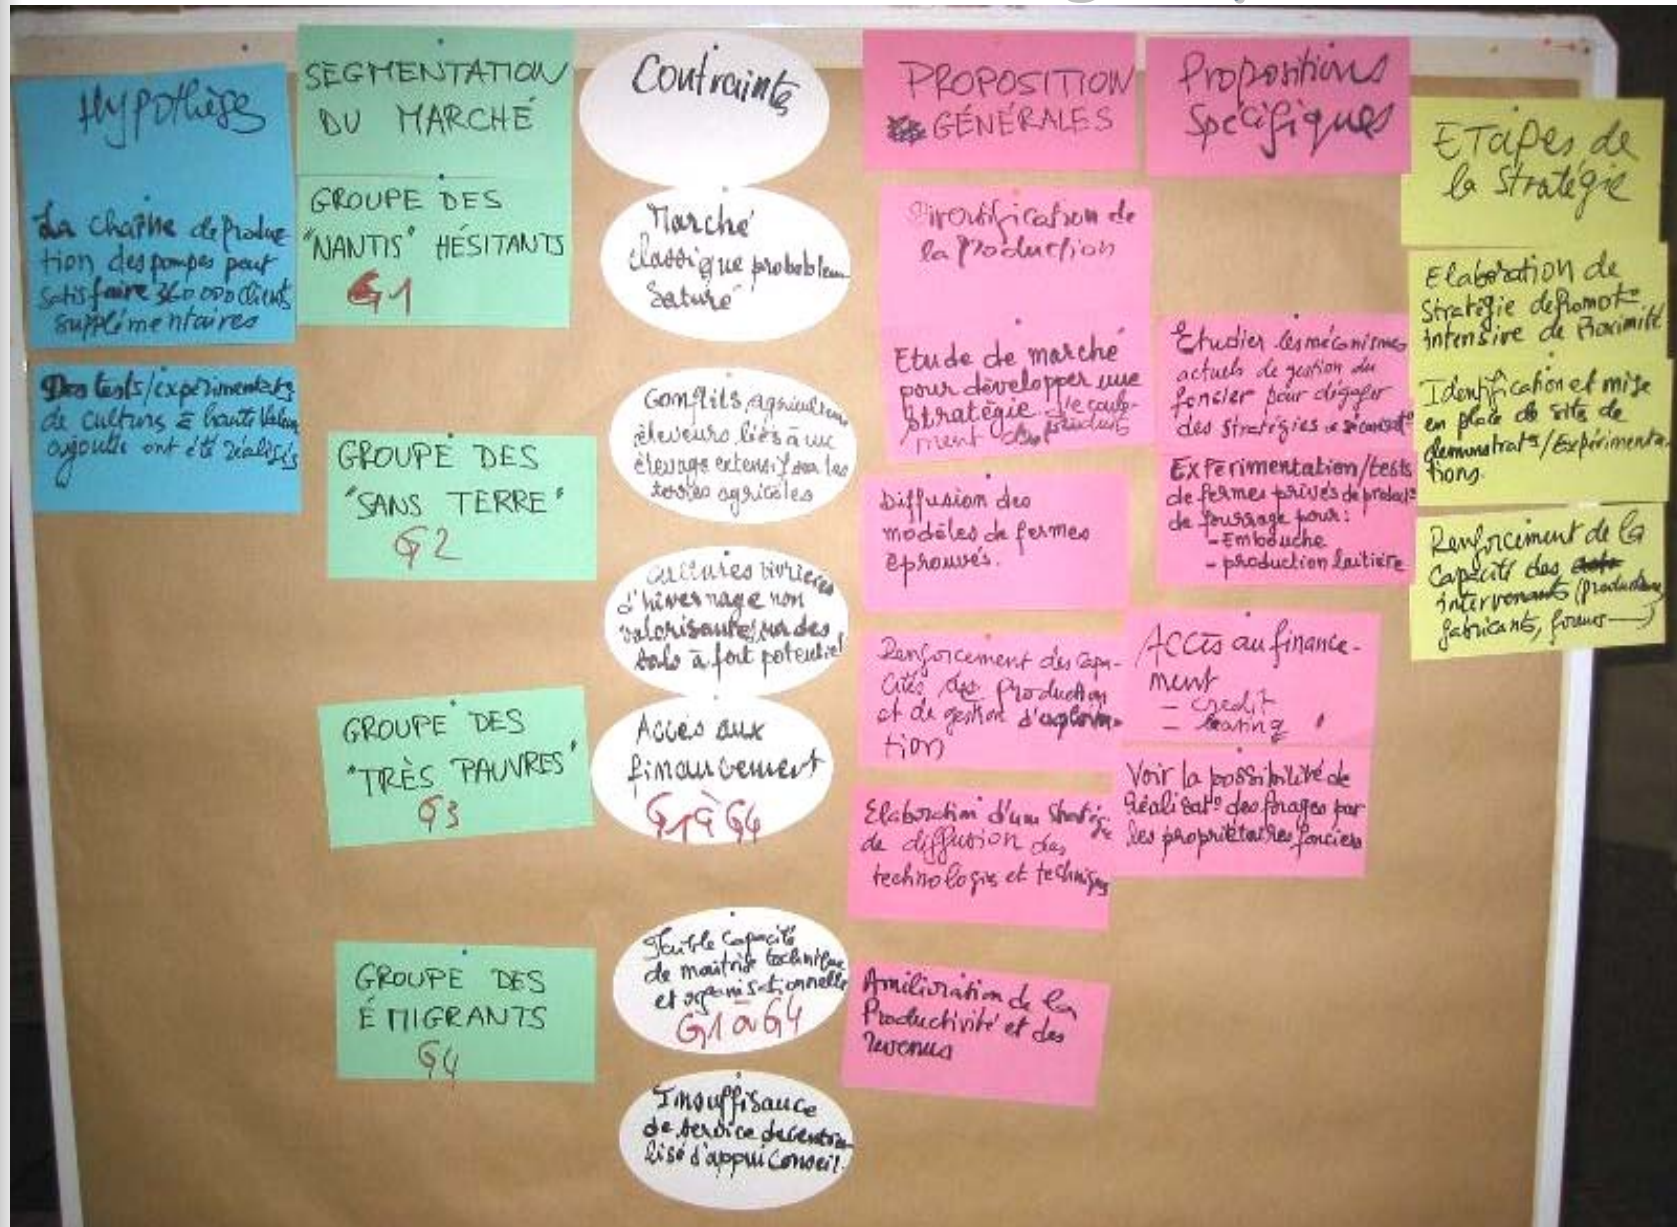 Hypothèse
La chaîne de produc
tion des pompes peut
satisfaire 360 000 clients
supplémentaires
Des tests/expérimentats
de cultures à haute valeur
ajoutée ont été réalisés
SEGMENTATION
DU MARCHÉ
GROUPE DES
"NANTIS" HÉSITANTS
G1
GROUPE DES
"SANS TERRE"
G2
GROUPE DES
"TRÈS PAUVRES"
G3
GROUPE DES
ÉMIGRANTS
G4
Contraintes
Marché
classique probablem
saturé
Conflits agriculteurs
éleveurs liés à un
élevage extensif sur les
terres agricoles
Cultures vivrières
d'hivernage non
valorisantes sur des
sols à fort potentiel
Accès aux
financement
G1 à G4
Faible capacité
de maitrise technique
et organisationnelle
G1 à G4
Insuffisance
de service decentra
lisé d'appui conseil.
PROPOSITION
GÉNÉRALES
Diversification de
la Production
Etude de marché
pour développer une
stratégie d'ecoule-
ment des produits
Diffusion des
modèles de fermes
éprouvés.
Renforcement des capa-
cités de production
et de gestion d'exploita-
tion
Elaboration d'une stratégie
de diffusion des
technologies et techniques
Amélioration de la
Productivité et des
revenus
Propositions
Spécifiques
Etudier les mécanismes
actuels de gestion du
foncier pour dégager
des stratégies
Expérimentation/tests
de fermes privés de product°
de fourrage pour:
- Embouche
- production laitière
Accès au finance-
ment
- credit
- leasing
Voir la possibilité de
réalisat° des forages par
les propriétaires fonciers
ETapes de
la Stratégie
Elaboration de
stratégie de promot°
intensive de Proximité
Identification et mise
en place de sites de
demonstrats/Expérimenta
tions.
Renforcement de la
capacité des
intervenants (producteurs,
fabricants,